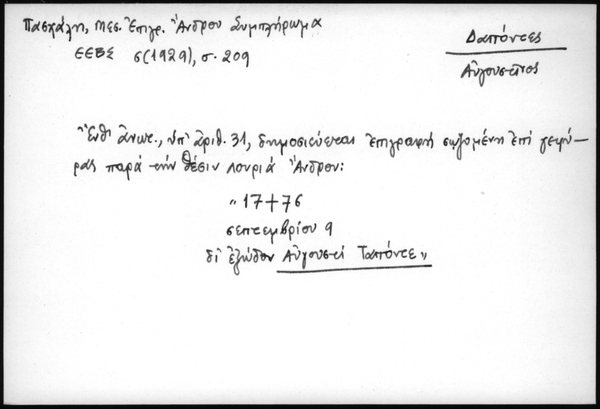 Πασχάλη, Μεσ. Ἐπιγρ. Ἄνδρου Συμπλήρωμα
ΕΕΒΣ 6(1929), σ. 209
Δαπόντες
Αὐγουστῖνος
Ἔνθ' ἄνωτ., ὑπ' ἀριθ. 31, δημοσιεύεται ἐπιγραφή σωζομένη ἐπί γεφύ-
ρας παρά τήν θέσιν Λουριά Ἄνδρου:
„ 17+76
σεπτεμβρίου 9
δι' ἐξώδον Αὐγουστί Ταπόντε „